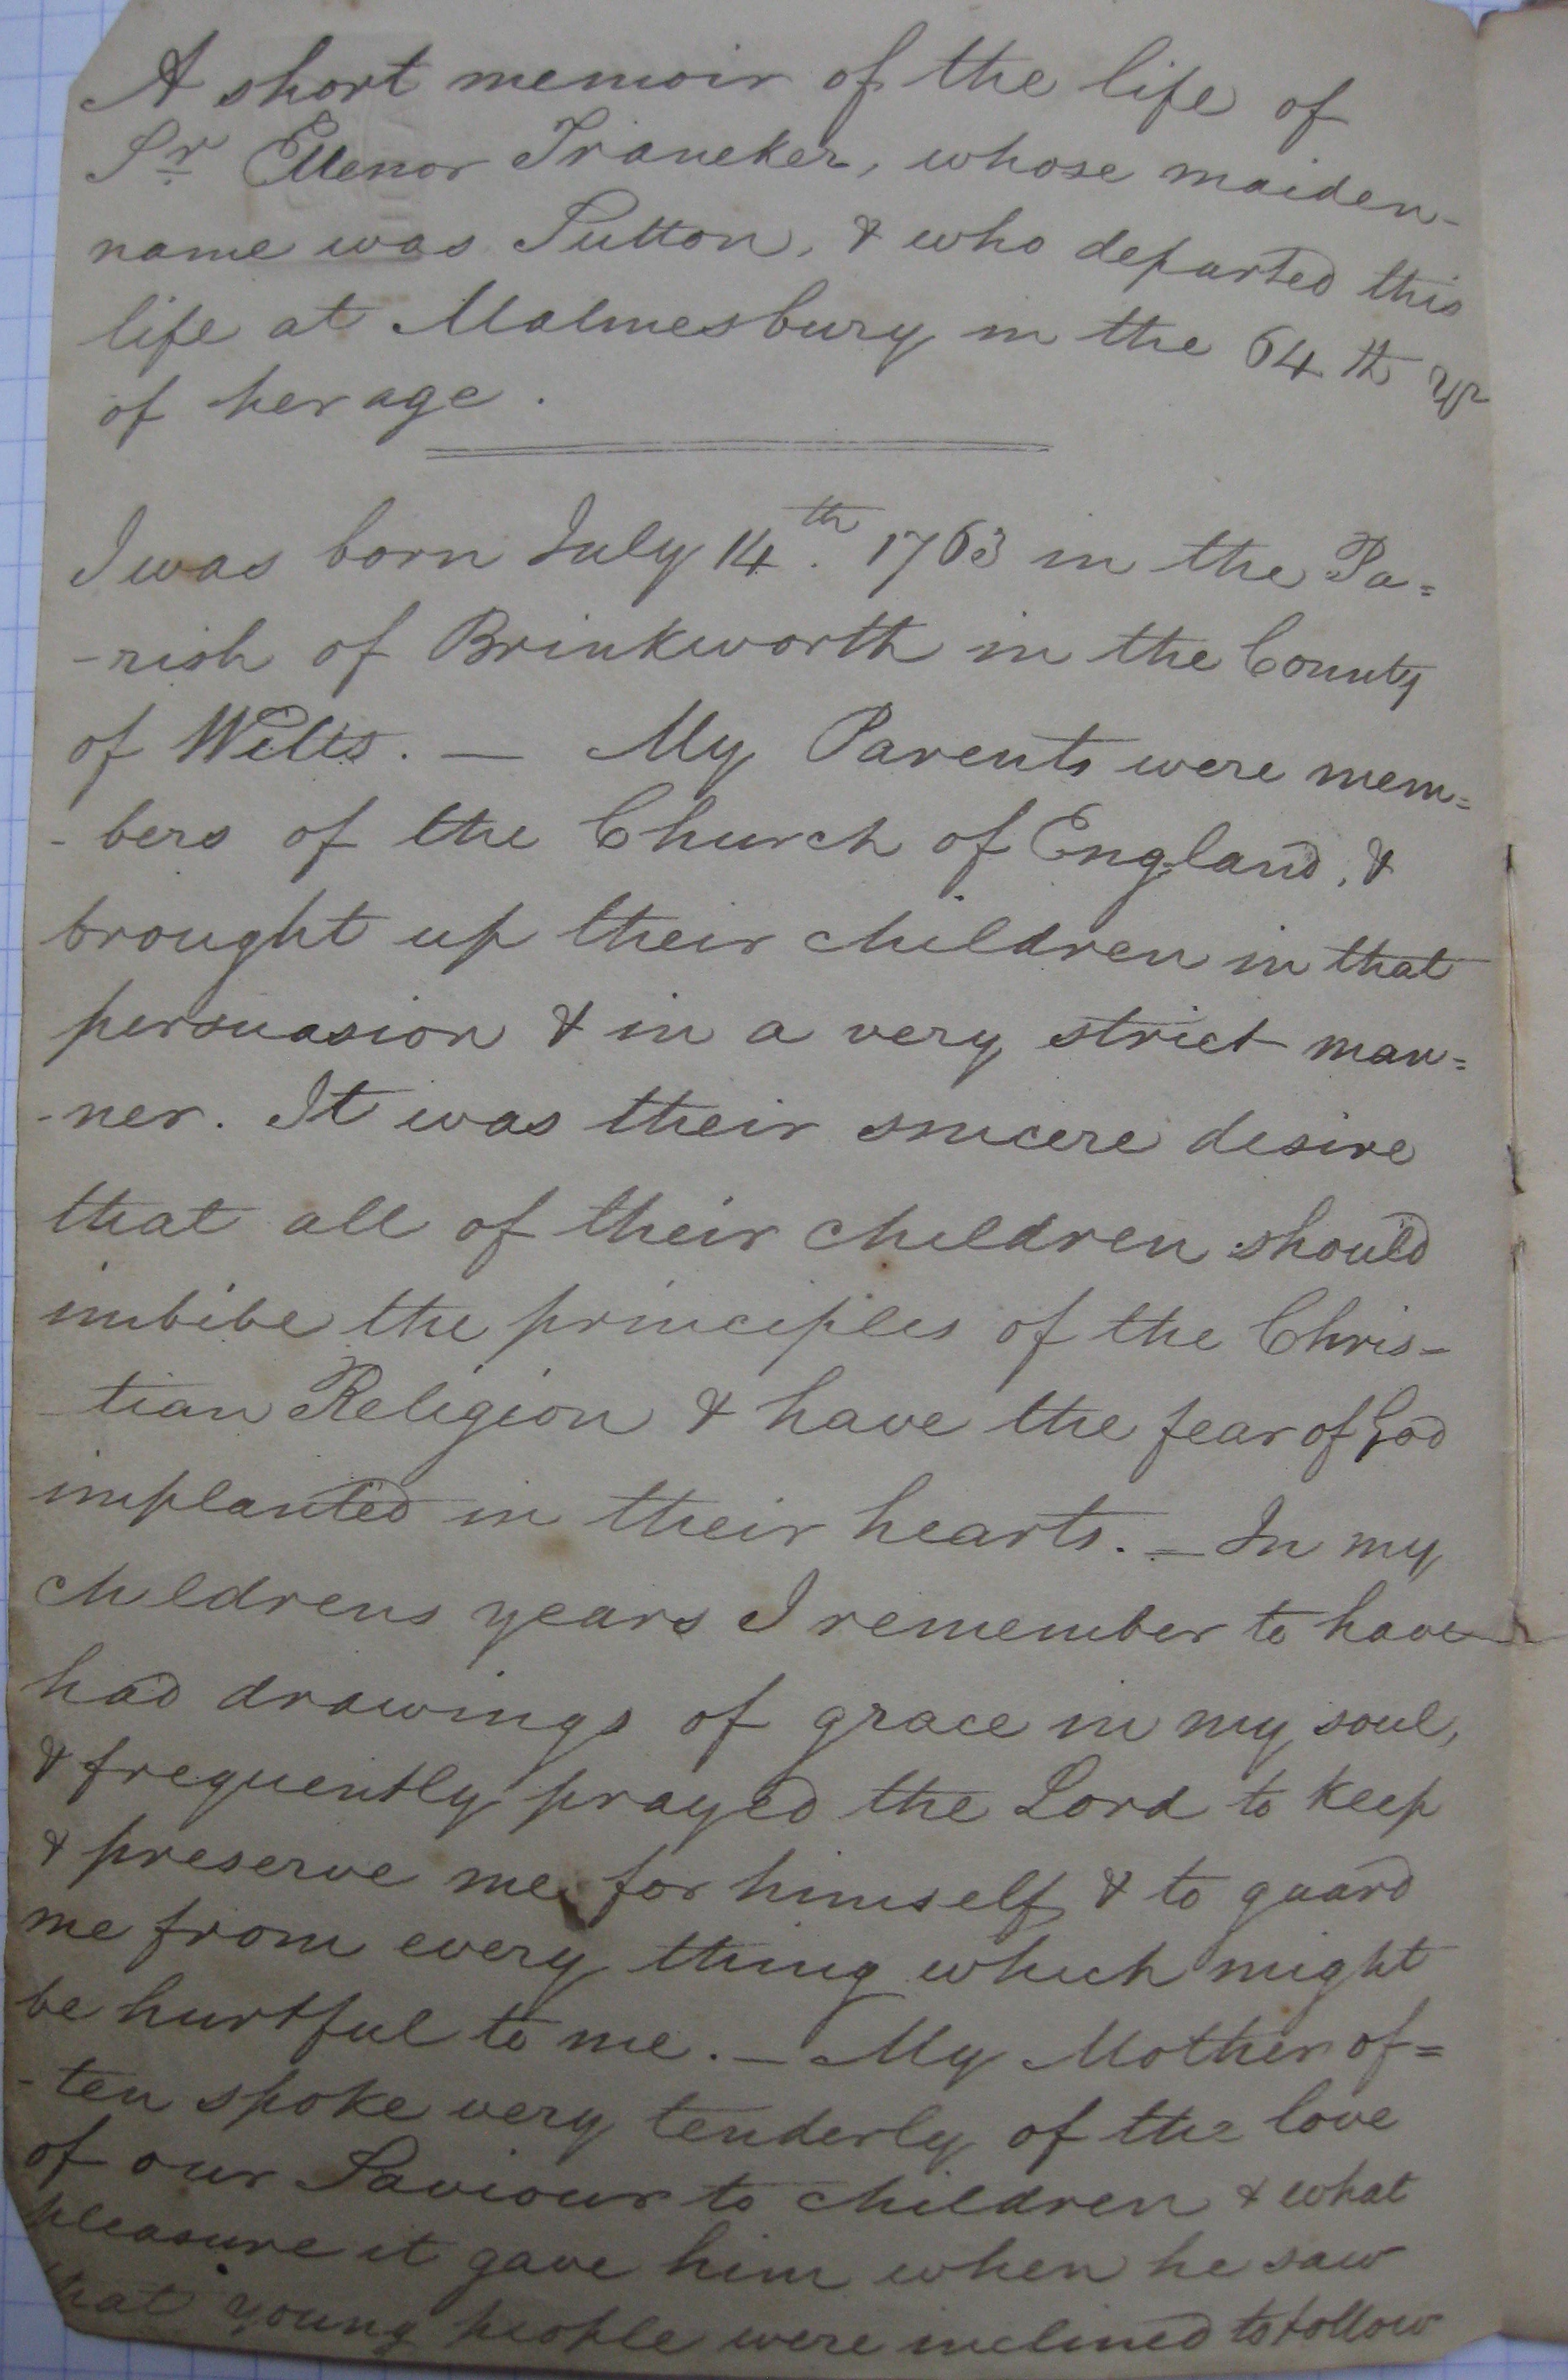 A short memoir of the life of
Sr Ellenor Traneker, whose maiden-
name was Sutton, & who departed this
life at Malmesbury in the 64th yr
of her age.
I was born July 14th. 1763 in the Pa=
-rish of Brinkworth in the County
of Wilts. — My Parents were mem=
-bers of the Church of England, &
brought up their children in that
persuasion & in a very strict man=
-ner. It was their sincere desire
that all of their children should
imbibe the principles of the Chris-
-tian Religion & have the fear of God
implanted in their hearts. — In my
childrens years I remember to have
had drawings of grace in my soul,
& frequently prayed the Lord to keep
& preserve me for himself & to guard
me from every thing which might
be hurtful to me. — My Mother of=
-ten spoke very tenderly of the love
of our Saviour to children & what
pleasure it gave him when he saw
that young people were inclined to follow